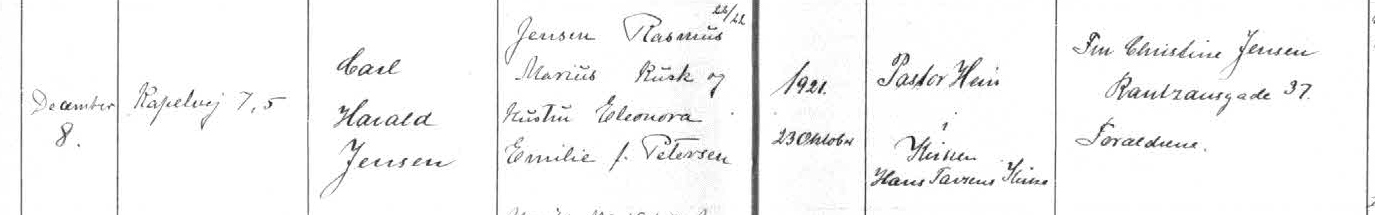 December
8.
Kapelvej 7, 5
Carl
Harald
Jensen
22/22
Jensen Rasmus
Marius Kusk og
Hustru Eleonora
Emilie f. Petersen
1921.
23 Oktober
Pastor Hein
i
Kirken
Hans Tavsens Kirke
Fru Christine Jensen
Rantzausgade 37.
Forældrene.